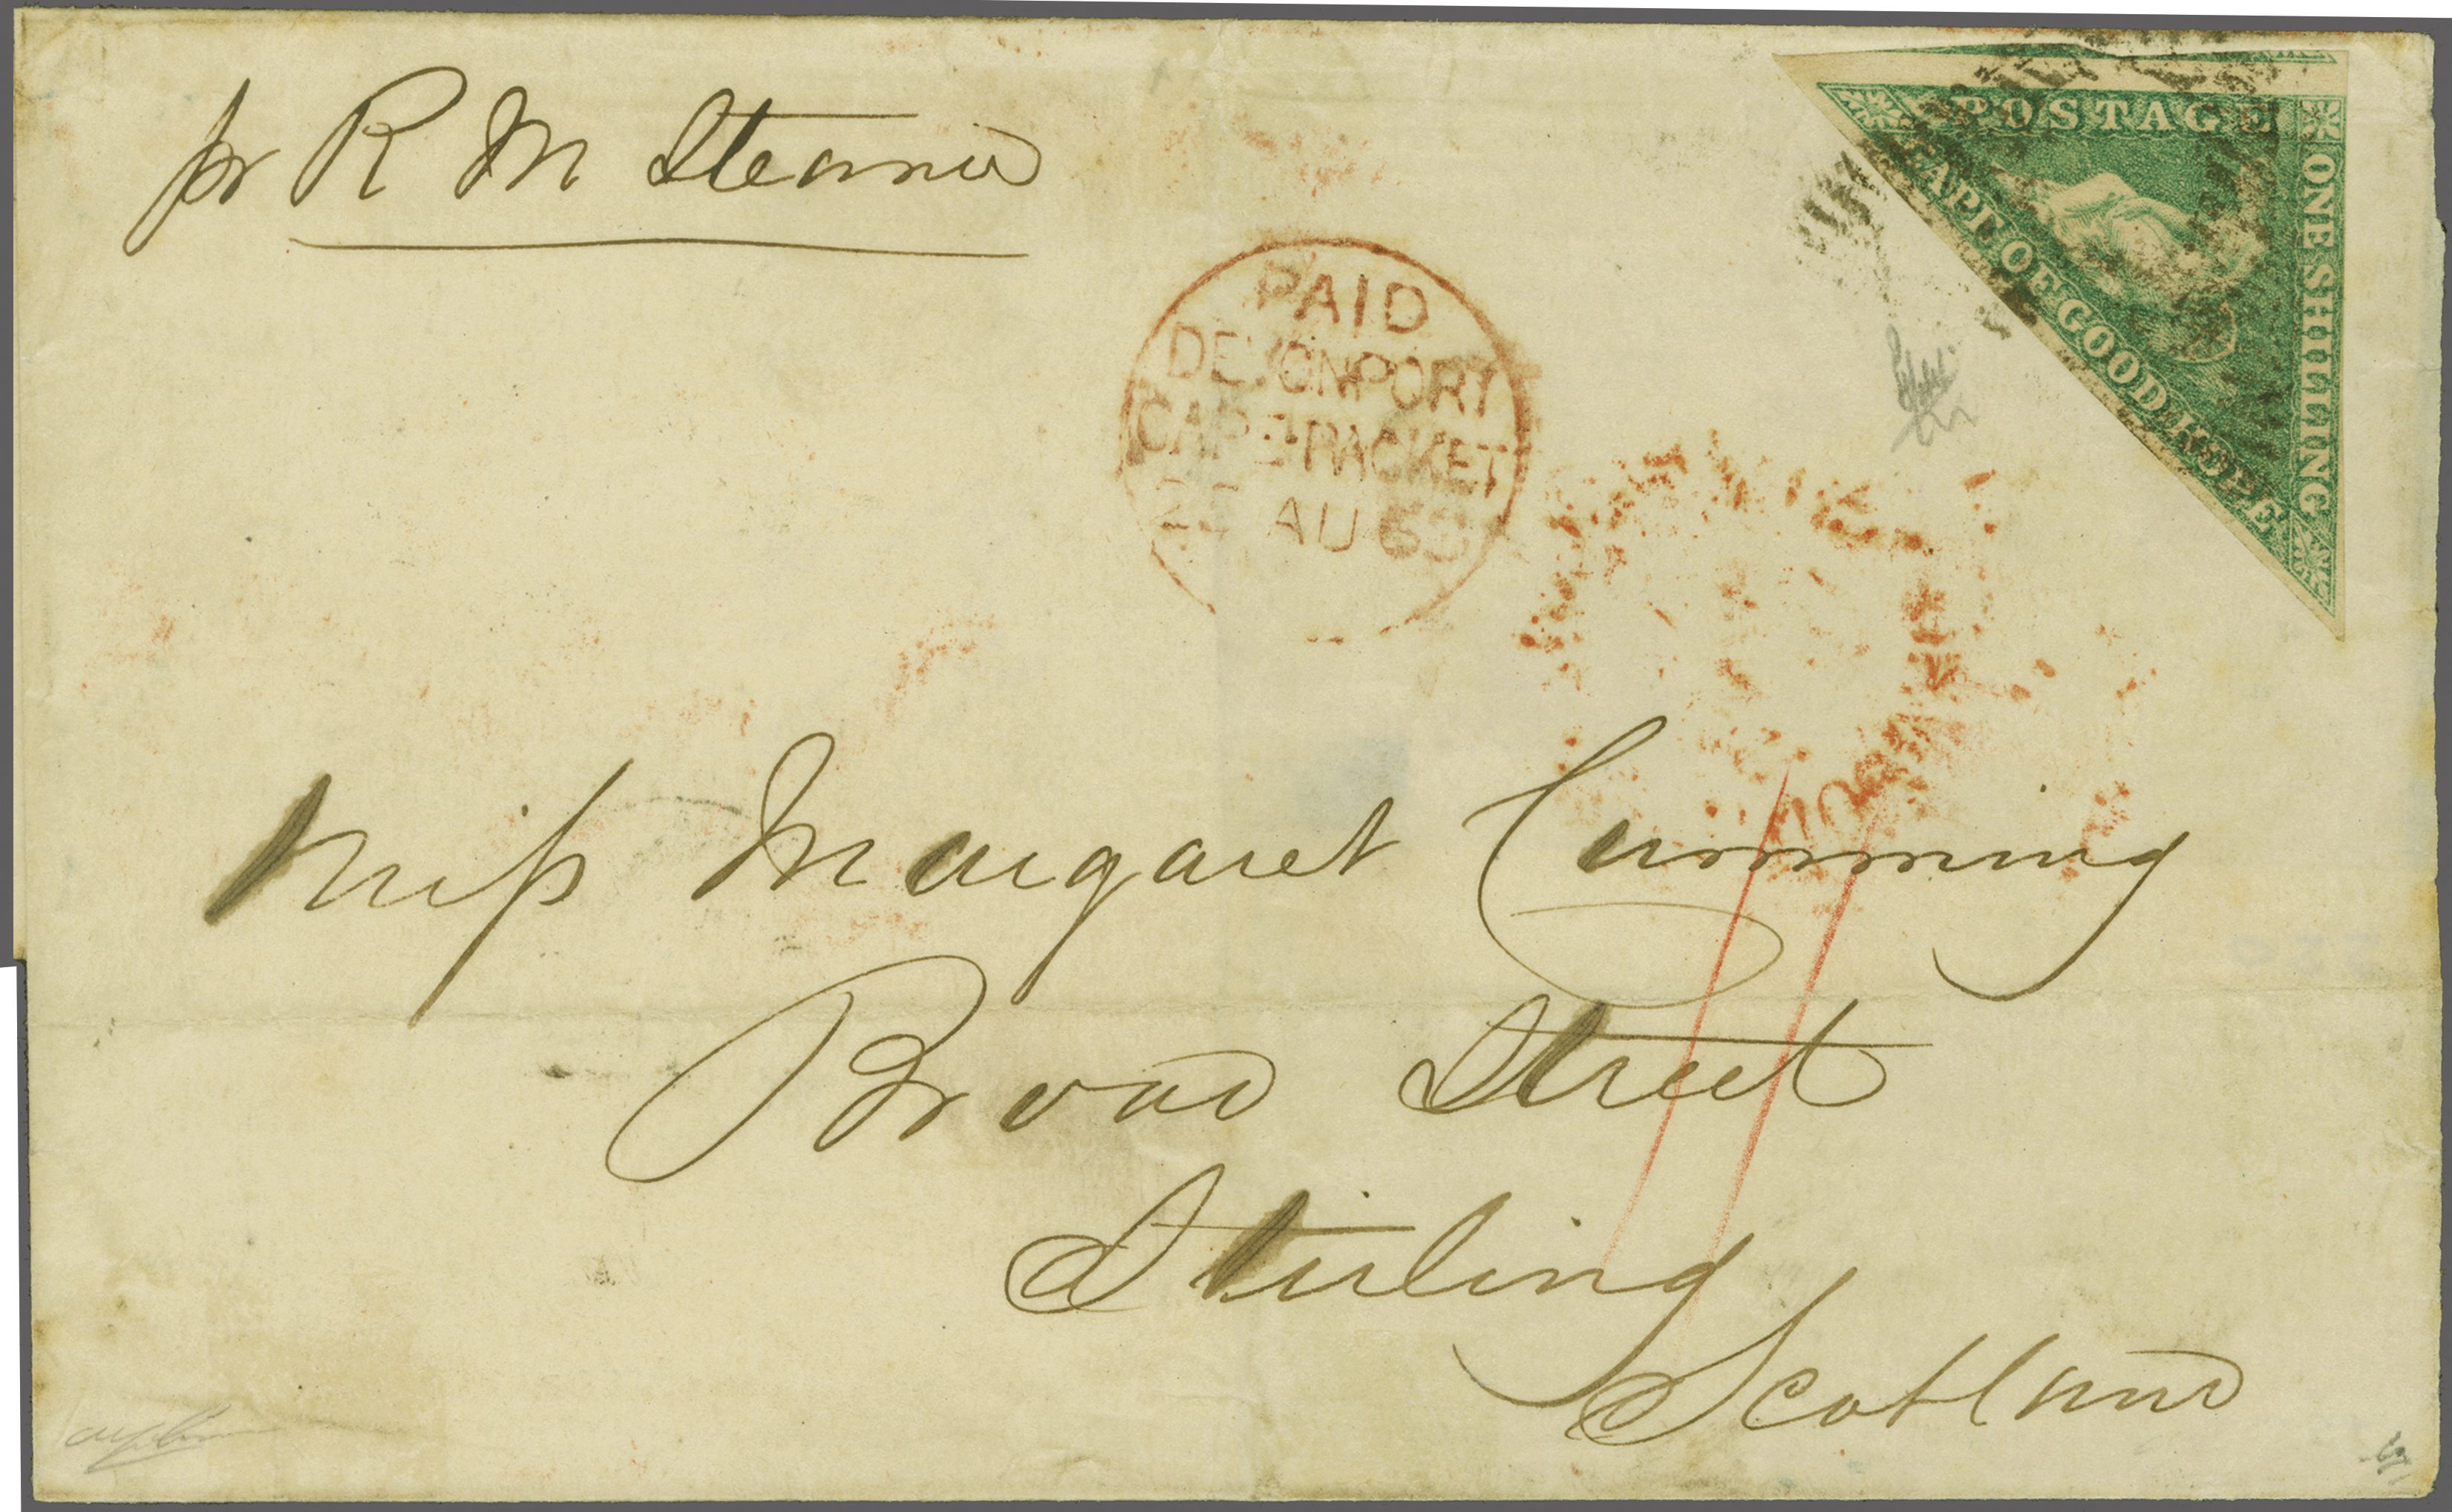 pr R M Steamer
POSTAGE
CAPE OF GOOD HOPE
ONE SHILLING
PAID
DEVONPORT
CAPE PACKET
AU
Miss Margaret Cumming
Broad Street
Stirling
Scotland